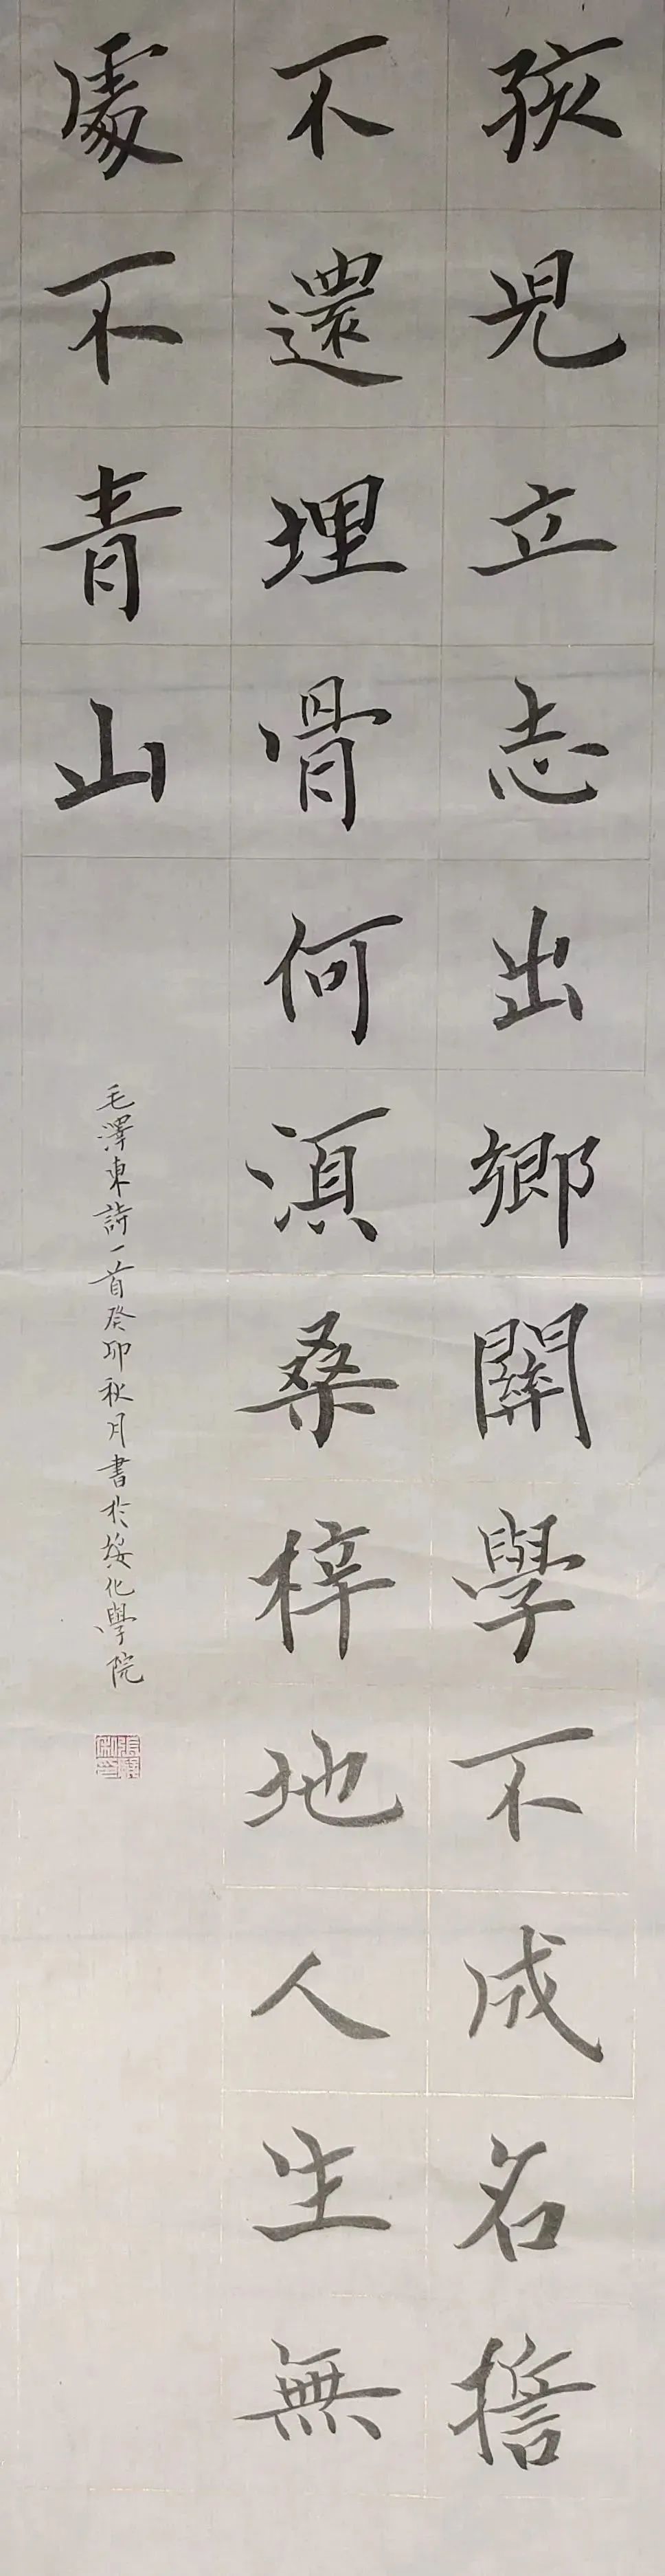 孩児立志出鄉關學不成名誓
不還埋骨何須桑梓地人生無
處不青山
毛澤東詩一首癸卯秋月書於綏化學院